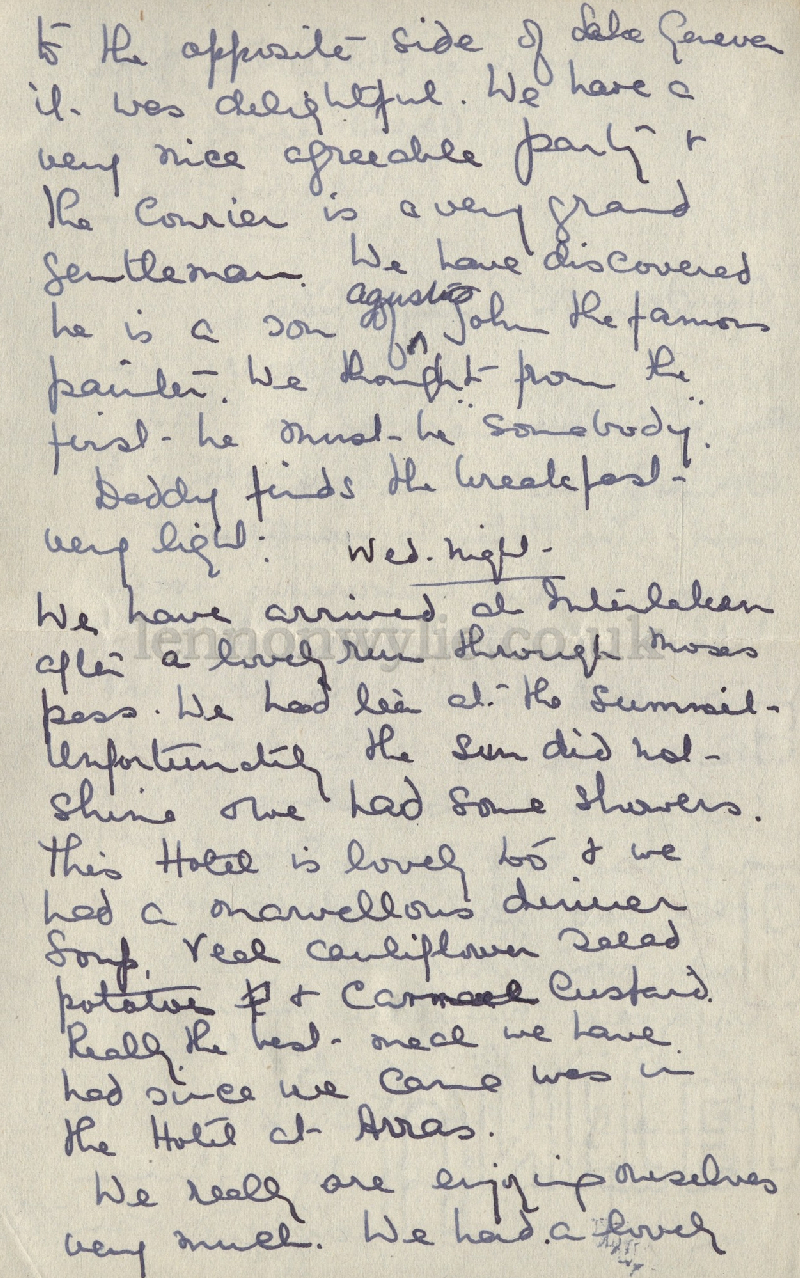 to the opposite side of Lake Geneva
it was delightful. We have a
very nice agreeable party &
the Courier is a very grand
gentleman. We have discovered
he is a son of ^ agustus John the famous
painter. We thought from the
first he must be "somebody".
Daddy finds the breakfast
very light:
Wed. night
We have arrived at Interlaken
lennonwylie.co.uk
after a lovely run through Moses
pass. We had tea at the summit
Unfortunately the sun did not
shine & we had some showers.
This Hotel is lovely too & we
had a marvellous dinner
Soup, Veal Cauliflower Salad
potatoes & Carmael Custard.
Really the best meal we have
had since we came was in
the Hotel at Arras.
We really are enjoying ourselves
very much. We had a lovely